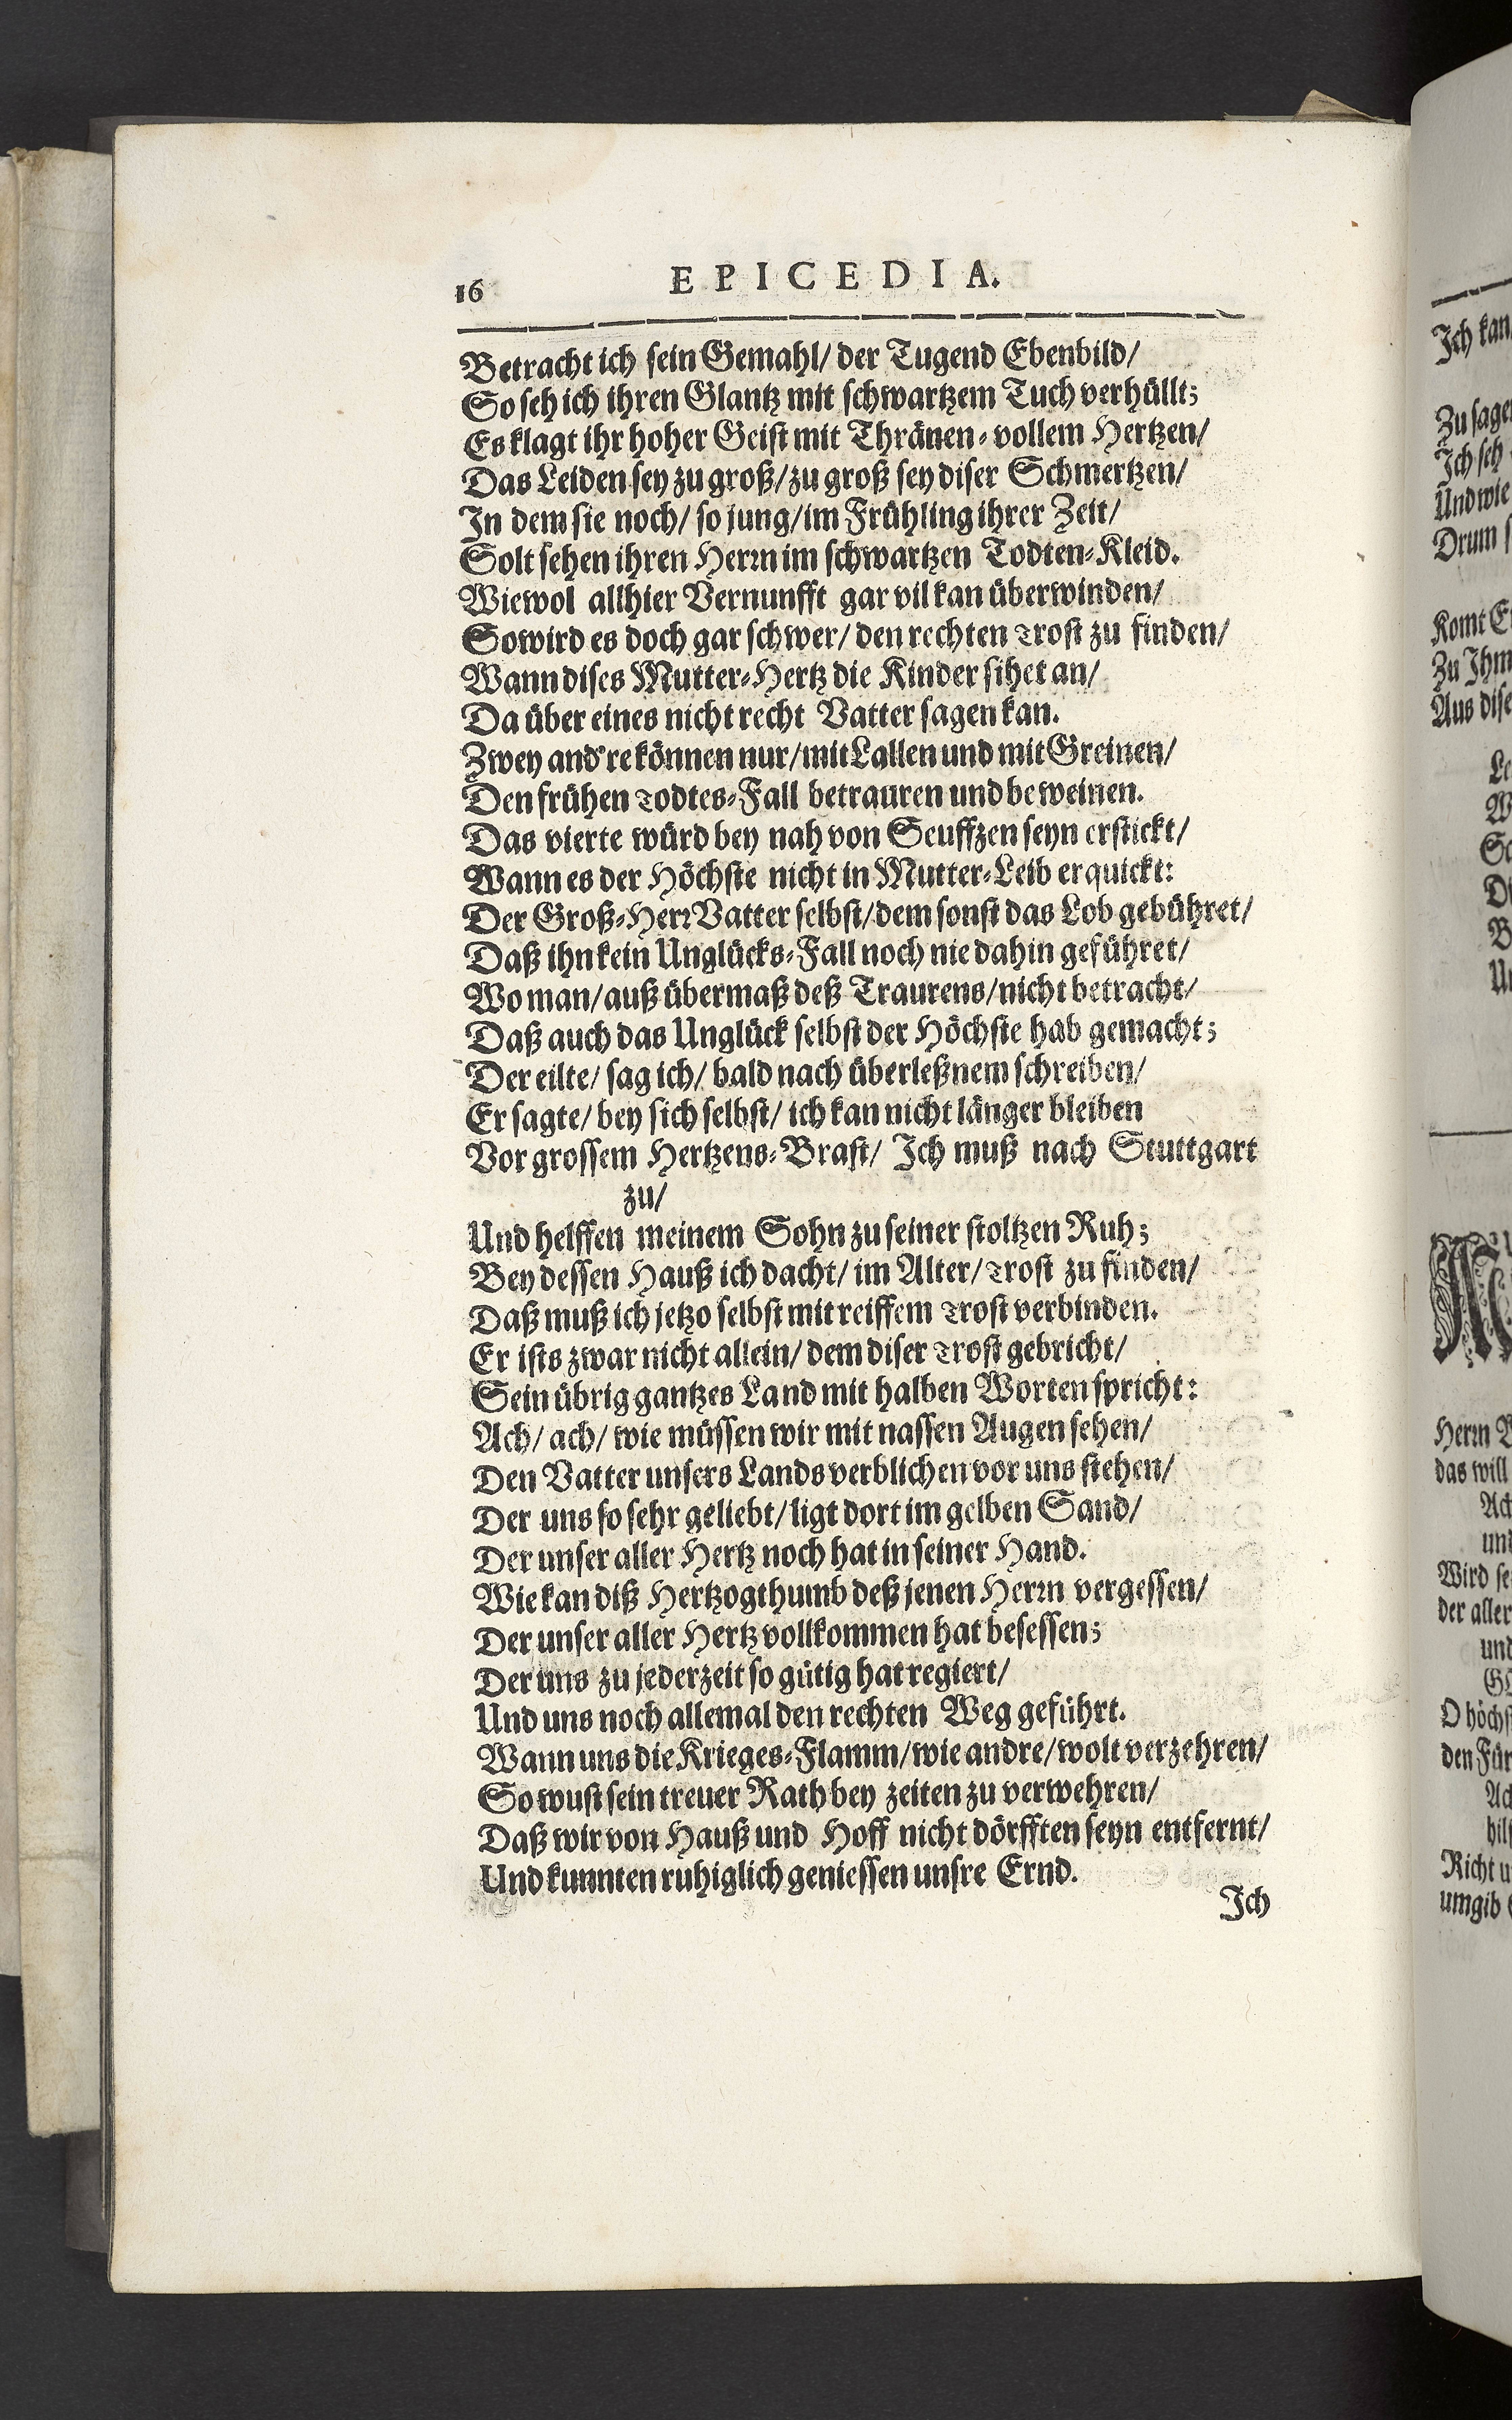 16 EPICEDIA.
Betracht ich sein Gemahl/ der Tugend Ebenbild/
So seh ich ihren Glantz mit schwartzem Tuch verhüllt;
Es klagt ihr hoher Geist mit Thränen-vollem Hertzen/
Das Leiden sey zu groß/ zu groß sey diser Schmertzen/
In dem sie noch/ so jung/ im Frühling ihrer Zeit/
Solt sehen ihren Herrn im schwartzen Todten-Kleid.
Wiewol allhier Vernunfft gar vil kan überwinden/
So wird es doch gar schwer/ den rechten Trost zu finden/
Wann dises Mutter-Hertz die Kinder sihet an/
Da über eines nicht recht Vatter sagen kan.
Zwey and're können nur/ mit Lallen und mit Greinen/
Den frühen Todtes-Fall betrauren und beweinen.
Das vierte würd bey nah von Seuffzen seyn erstickt/
Wann es der Höchste nicht in Mutter-Leib erquickt:
Der Groß-Herr Vatter selbst/ dem sonst das Lob gebühret/
Daß ihn kein Unglücks-Fall noch nie dahin geführet/
Wo man/ auß übermaß deß Traurens/ nicht betracht/
Daß auch das Unglück selbst der Höchste hab gemacht;
Der eilte/ sag ich/ bald nach überleßnem schreiben/
Er sagte/ bey sich selbst/ ich kan nicht länger bleiben
Vor grossem Hertzens-Brast/ Ich muß nach Stuttgart
zu/
Und helffen meinem Sohn zu seiner stoltzen Ruh;
Bey dessen Hauß ich dacht/ im Alter/ Trost zu finden/
Daß muß ich jetzo selbst mit reiffem Trost verbinden.
Er ists zwar nicht allein/ dem diser Trost gebricht/
Sein übrig gantzes Land mit halben Worten spricht:
Ach/ ach/ wie müssen wir mit nassen Augen sehen/
Den Vatter unsers Lands verblichen vor uns stehen/
Der uns so sehr geliebt/ ligt dort im gelben Sand/
Der unser aller Hertz noch hat in seiner Hand.
Wie kan diß Hertzogthumb deß jenen Herrn vergessen/
Der unser aller Hertz vollkommen hat besessen;
Der uns zu jederzeit so gütig hat regiert/
Und uns noch allemal den rechten Weg geführt.
Wann uns die Krieges-Flamm/ wie andre/ wolt verzehren/
So wust sein treuer Rath bey zeiten zu verwehren/
Daß wir von Hauß und Hoff nicht dörfften seyn entfernt/
Und kunnten ruhiglich geniessen unsre Ernd.
Ich
Ich kan
Zu sagen
Ich seh
Und wie
Drum
Komt
Zu Ihm
Aus
Herrn
das will
und
Wird
der aller
und
O
den
Richt
umgib